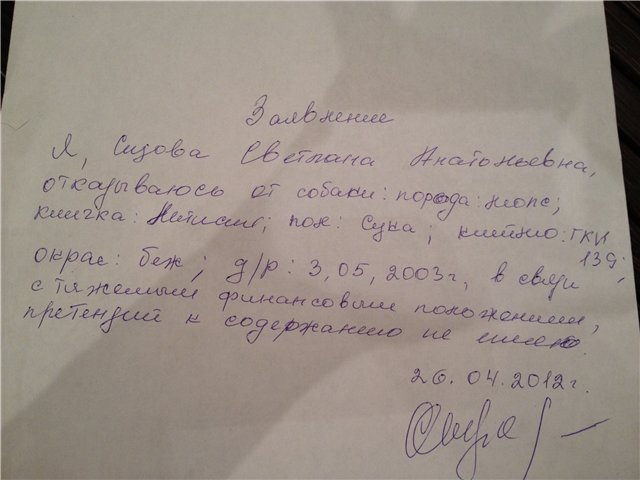 Заявление
Я, Сизова Светлана Анатольевна,
отказываюсь от собаки: порода: мопс;
кличка: пол: Сука; клеймо: ГКИ
139;
окрас: беж; д/р: 3,05,2003г, в связи
с тяжелым финансовым положением,
претензий к содержанию не имею.
26.04.2012г.